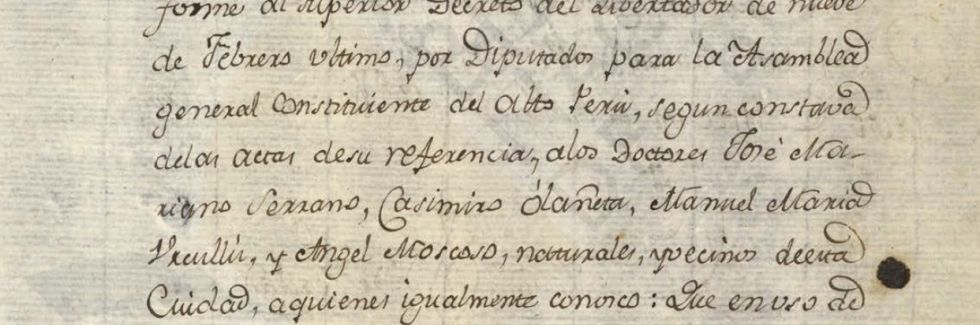 forme al superior Decreto del Libertador de nueve
de Febrero ultimo, por Diputados para la Asamblea
general Constituiente del Alto Perú, segun constava
delas actas desu referencia, alos Doctores José Ma-
riano Serrano, Casimiro Olañeta, Manuel Maria
Vrcullú, y Angel Moscoso, naturales, yvecinos deesta
Cuidad, aquienes igualmente conosco: Que en uso de